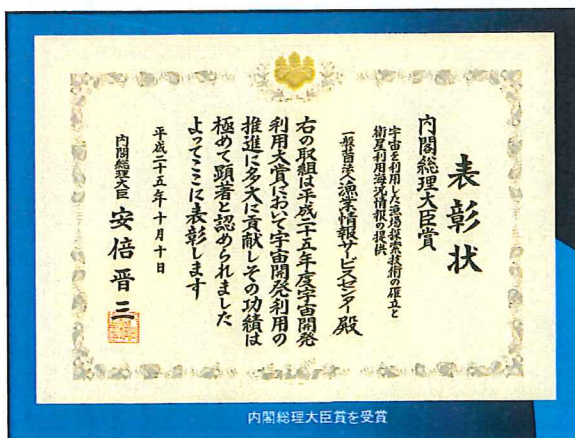 表彰状
内閣総理大臣賞
宇宙を利用した漁場探索技術の確立と
衛星利用海況情報の提供
一般社団法人漁業情報サービスセンター殿
右の取組は平成二十五年度宇宙開発
利用大賞において宇宙開発利用の
推進に多大に貢献しその功績は
極めて顕著と認められました
よってここに表彰します
平成二十五年十月十日
内閣総理大臣 安倍晋三
内閣総理大臣賞を受賞